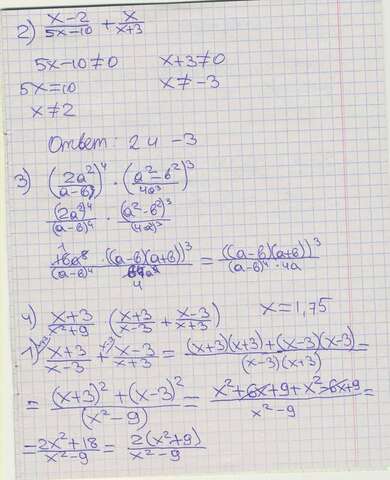 2) (x-2)/(5x-10) + x/(x+3)
5x-10≠0 x+3≠0
5x=10 x≠-3
x≠2
Ответ: 2 и -3
3) (2a²/(a-в))⁴ · ((a²-в²)/4a³)³
(2a²)⁴/(a-в)⁴ · (a²-в²)³/(4a³)³
16a⁸/(a-в)⁴ · ((a-в)(a+в))³/64a⁹ = ((a-в)(a+в))³/((a-в)⁴·4a)
1
4
4) (x+3)/(x²+9) · ((x+3)/(x-3) + (x-3)/(x+3)) x=1,75
1) (x+3)/(x-3) + (x-3)/(x+3) = ((x+3)(x+3)+(x-3)(x-3))/((x-3)(x+3)) =
= ((x+3)²+(x-3)²)/(x²-9) = (x²+6x+9+x²-6x+9)/(x²-9) =
= (2x²+18)/(x²-9) = 2(x²+9)/(x²-9)